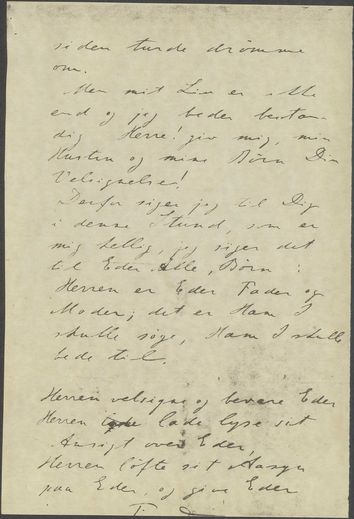 siden turde drömme
om.
Men mit Liv er ikke
end og jeg beder bestan-
dig Herre! giv mig, min
Hustru og mine Börn Din
Velsignelse!
Derfor siger jeg til Dig
i denne Stund, som er
mig hellig, jeg siger det
til Eder Alle, Börn:
Herren er Eder Fader og
Moder; det er Ham I
skulle søge, Ham I skulle
bede til.
Herren velsigne og bevare Eder
Herren lade lyse sit
Ansigt over Eder,
Herren löfte sit Aasyn
paa Eder, og give Eder